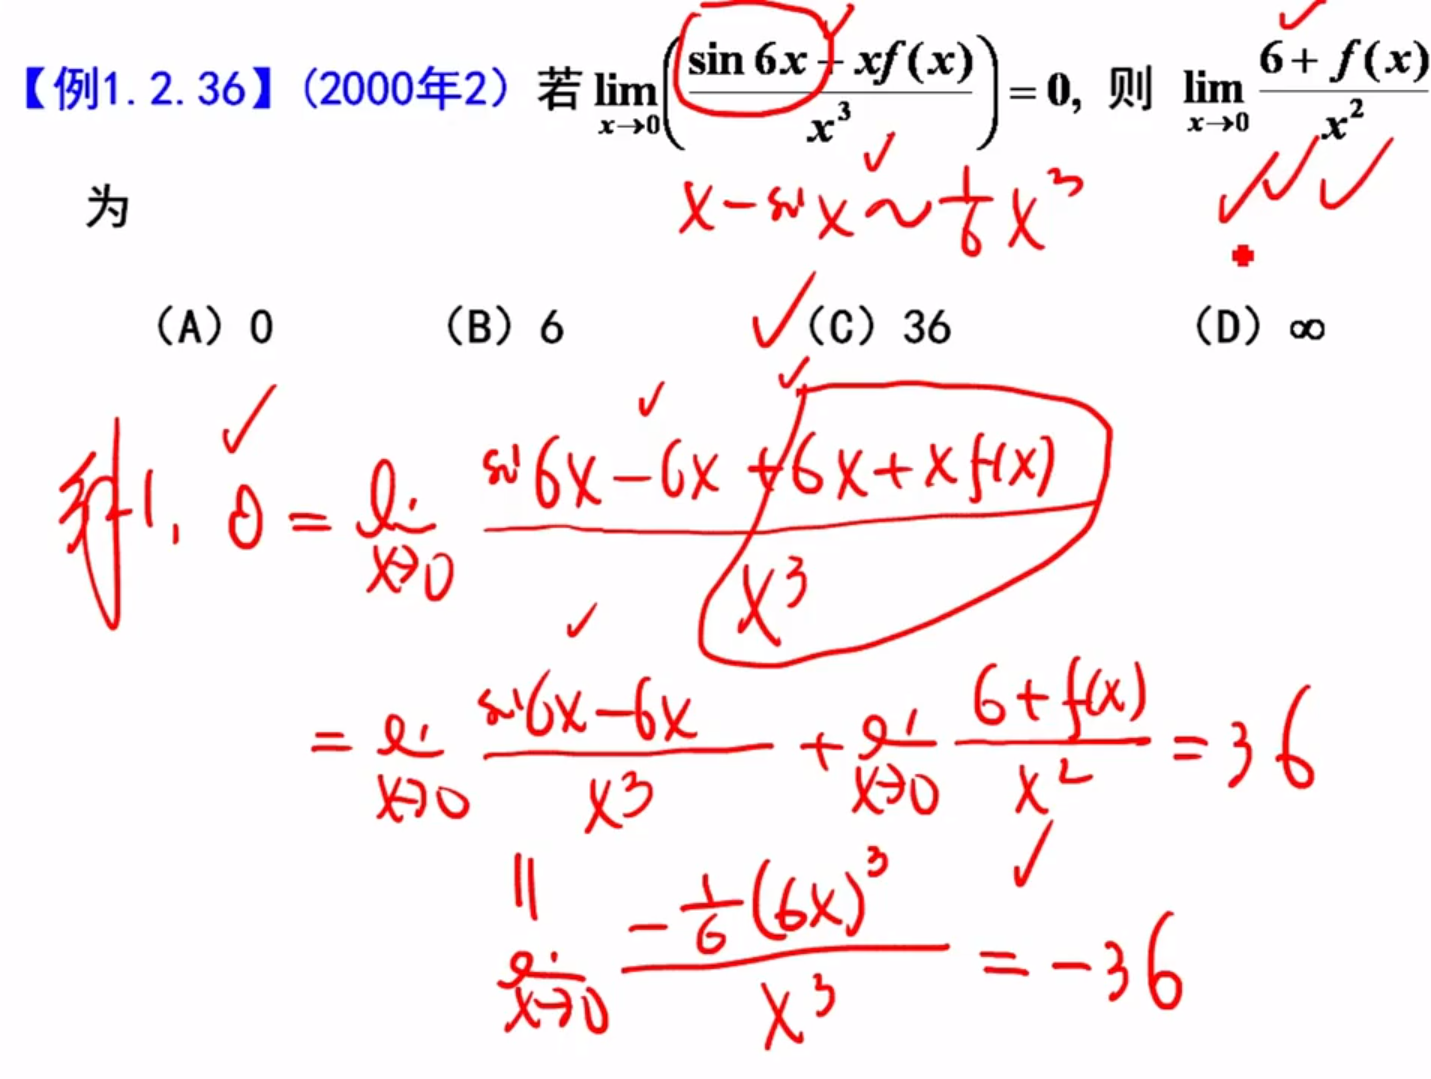 【例1.2.36】(2000年2) 若 lim x→0 ( (sin 6x + xf(x)) / x³ ) = 0, 则 lim x→0 (6 + f(x)) / x²
为
x - sin x ~ 1/6 x³
(A) 0 (B) 6 (C) 36 (D) ∞
1. 0 = lim x→0 (sin 6x - 6x + 6x + x f(x)) / x³
= lim x→0 (sin 6x - 6x) / x³ + lim x→0 (6 + f(x)) / x² = 36
||
lim x→0 (-1/6 (6x)³) / x³ = -36